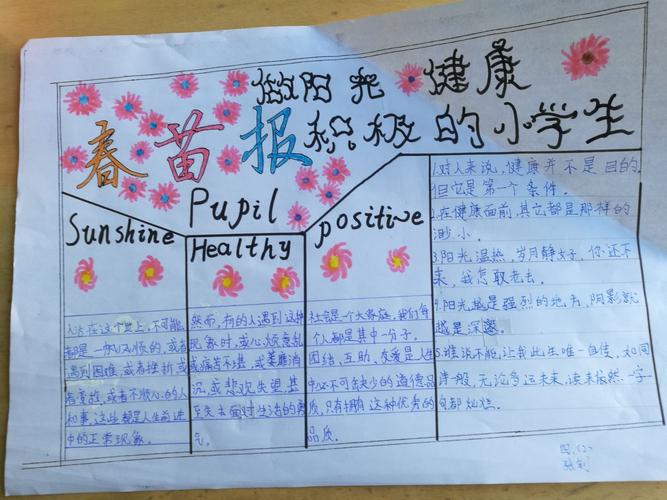 做阳光 健康
春苗报 积极的小学生
Pupil
Sunshine
Healthy
positive
人活在这个世上，不可能
都是一帆风顺的，或者
遇到困难，或者挫折或
者受挫，或者不顺心的人
和事，这些都是人生前进
中的正常现象。
然而，有的人遇到这种
现象时，或心烦意乱
或痛苦不堪，或萎靡消
沉，或悲观失望，甚
至失去面对生活的勇
气。
社会是一个大家庭，我们每
个人都是其中一分子。
团结、互助、友爱是人生
中必不可缺少的道德品
质，只有拥有这种优秀的
品质。
1.对人来说，健康并不是目的，
但它是第一个条件。
2.在健康面前，其它都是那样的
渺小。
3.阳光温热，岁月静好，你还不
来，我怎敢老去。
4.阳光越是强烈的地方，阴影就
越是深邃。
5.谁说不能，让我此生唯一自传，如同
诗一般，无论多远未来，读来依然一字一
句都灿烂。